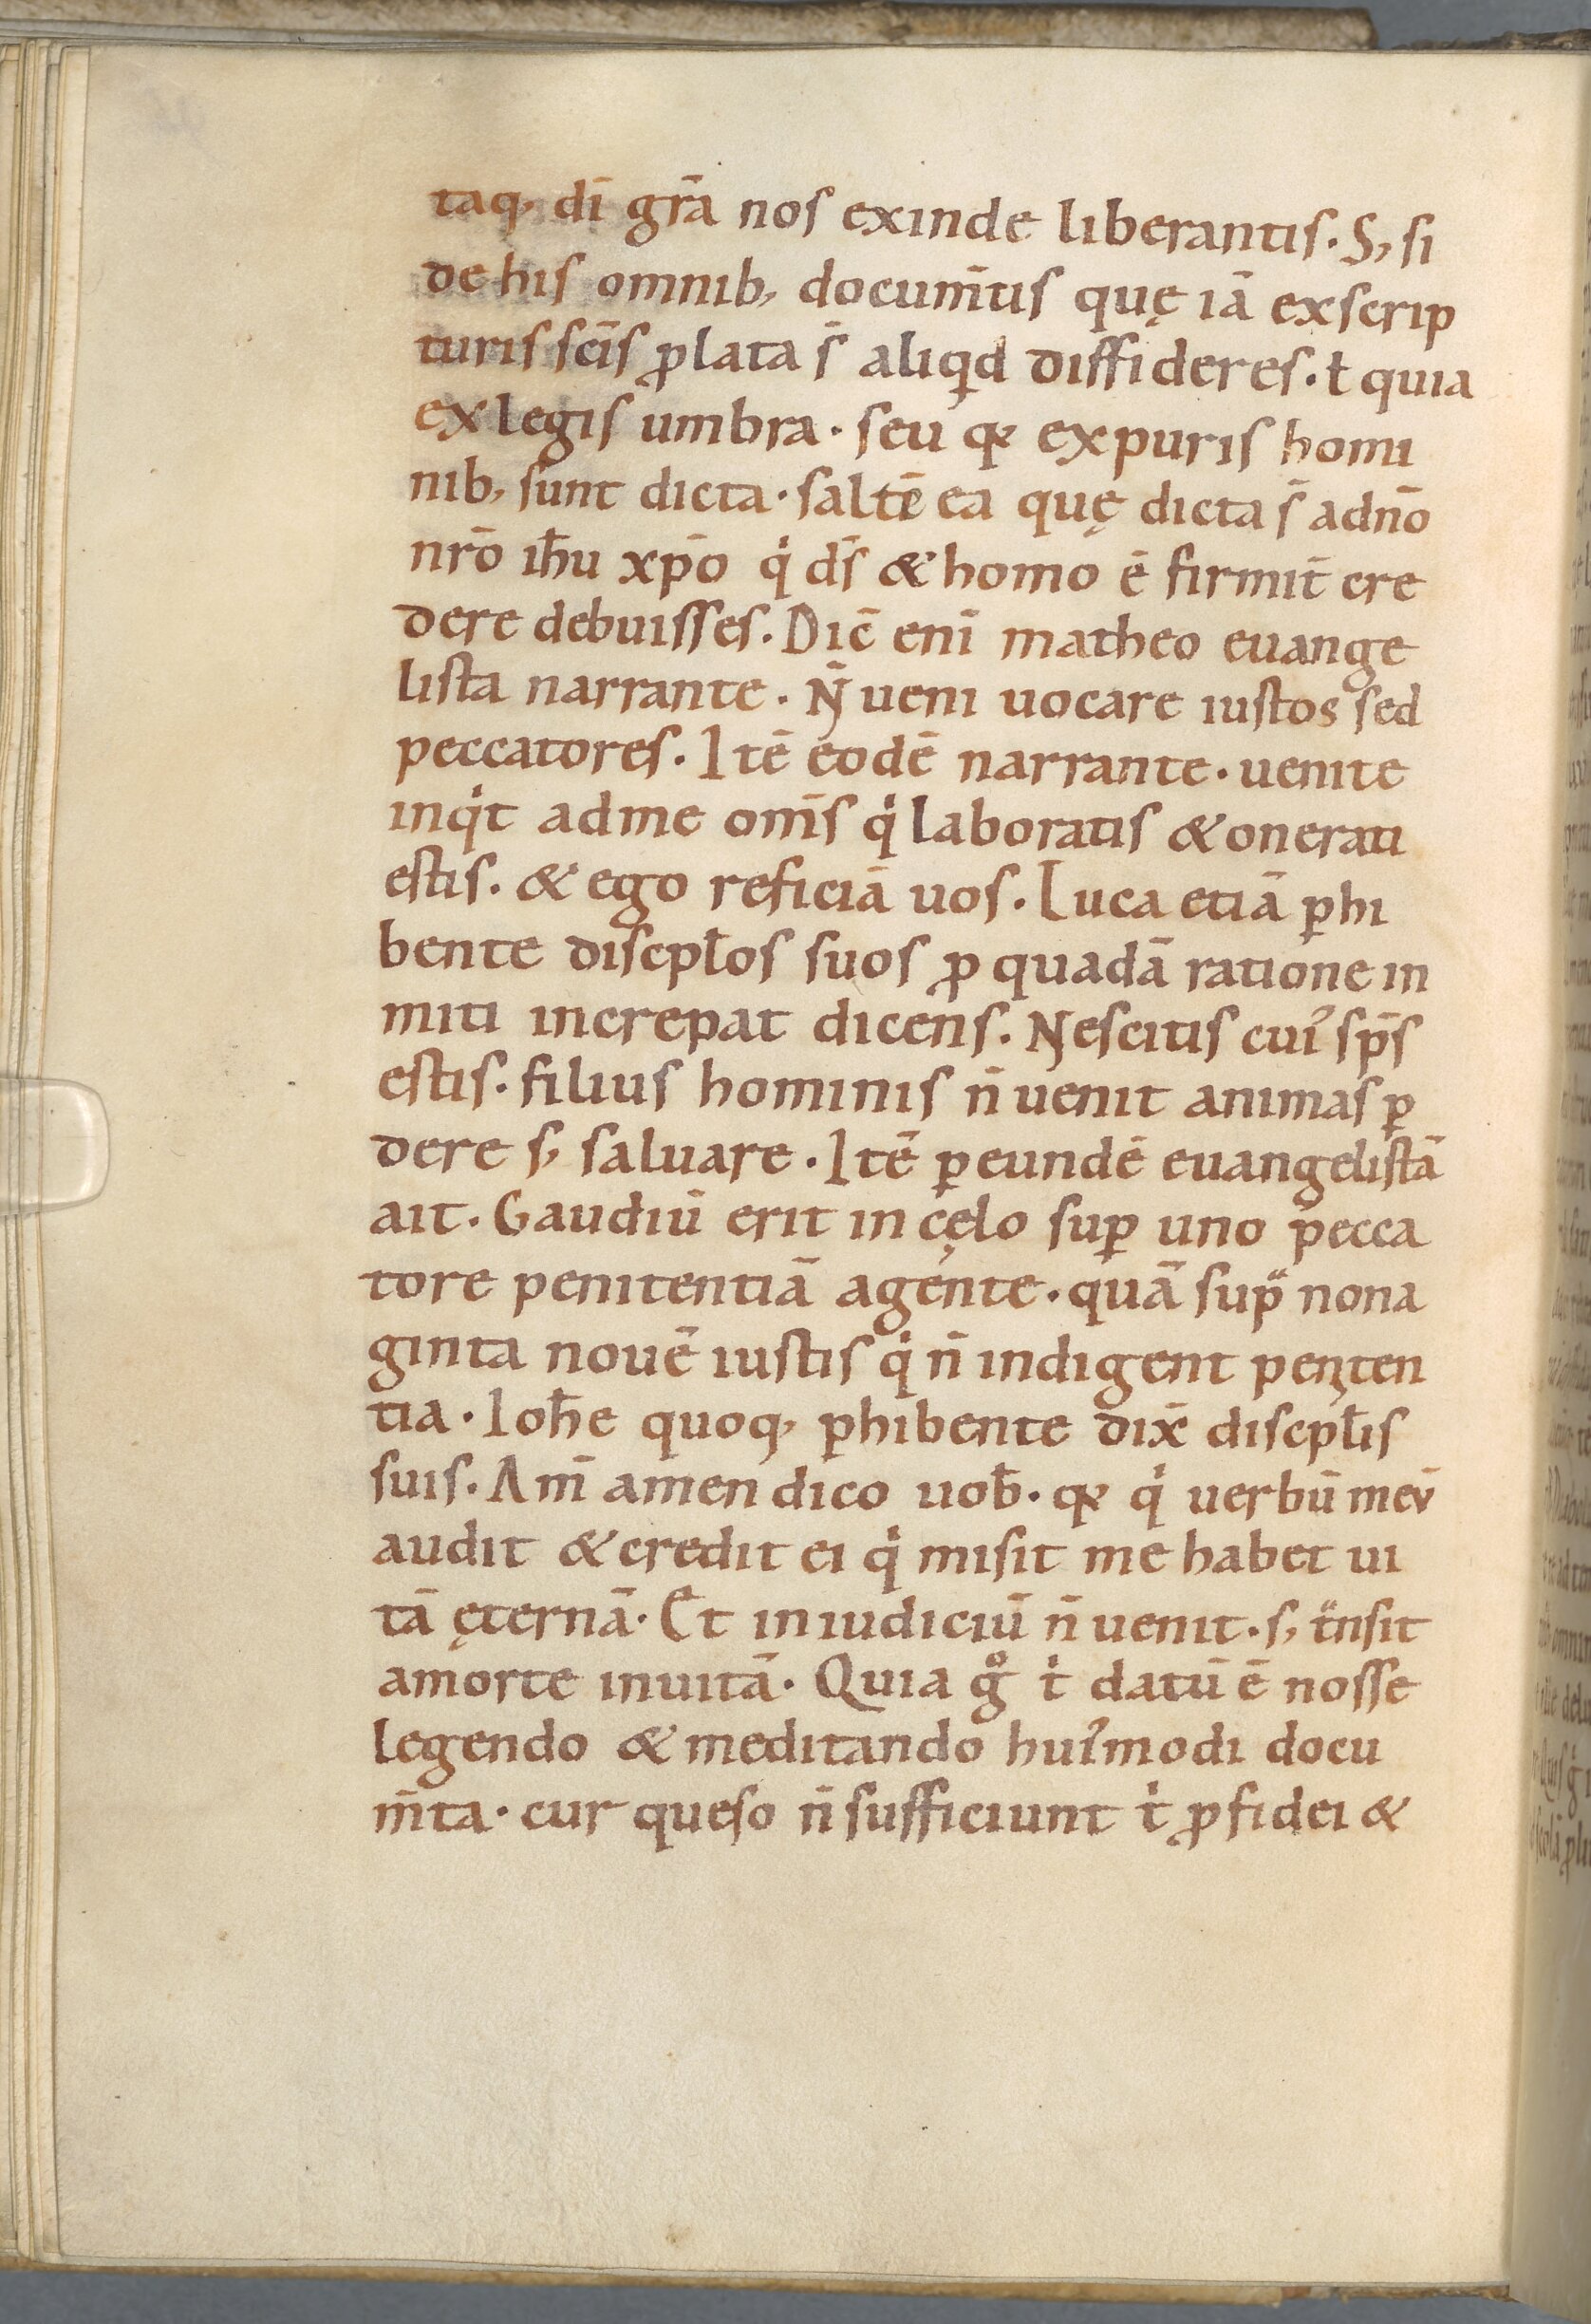 taq, dī gr̄a nos exinde liberantis. S, si
de his omnib, docum̄tis quę iā exscrip
turis sc̄is ꝓlata s̄ aliqͥd diffideres. ł quia
ex legis umbra. seu qꝛ expuris homi
nib, sunt dicta. saltē ea quę dicta s̄ adn̄o
nr̄o ih̄u xp̄o qͥ ds̄ & homo ē firmit̄ cre
dere debuisses. Dic̄ enī matheo euange
lista narrante. N̄ ueni uocare iustos sed
peccatores. Itē eodē narrante. uenite
inqͥt adme om̄s qͥ laboratis & onerati
estis. & ego reficiā uos. Luca etiā ꝑhi
bente discpłos suos ꝓ quadā ratione in
miti increpat dicens. Nescitis cuiꝰ sp̄s
estis. filius hominis n̄ uenit animas ꝑ
dere s, saluare. Itē ꝑ eundē euangelistā
ait. Gaudiū erit in cęlo suꝑ uno pecca
tore penitentiā agente. quā supᷓ nona
ginta nouē iustis qͥ n̄ indigent penıten
tia. Ioh̄e quoq, ꝑhibente dix̄ discpłis
suis. Am̄ amen dico uob̄. qꝛ qͥ uerbū meū
audit & credit ei qͥ misit me habet ui
tā ęternā. Et in iudiciū n̄ uenit. s, tᷓnsit
amorte inuitā. Quia gͦ tͥ datū ē nosse
legendo & meditando huiꝰmodi docu
m̄ta. cur queso n̄ sufficiunt tͥ ꝓ fidei &